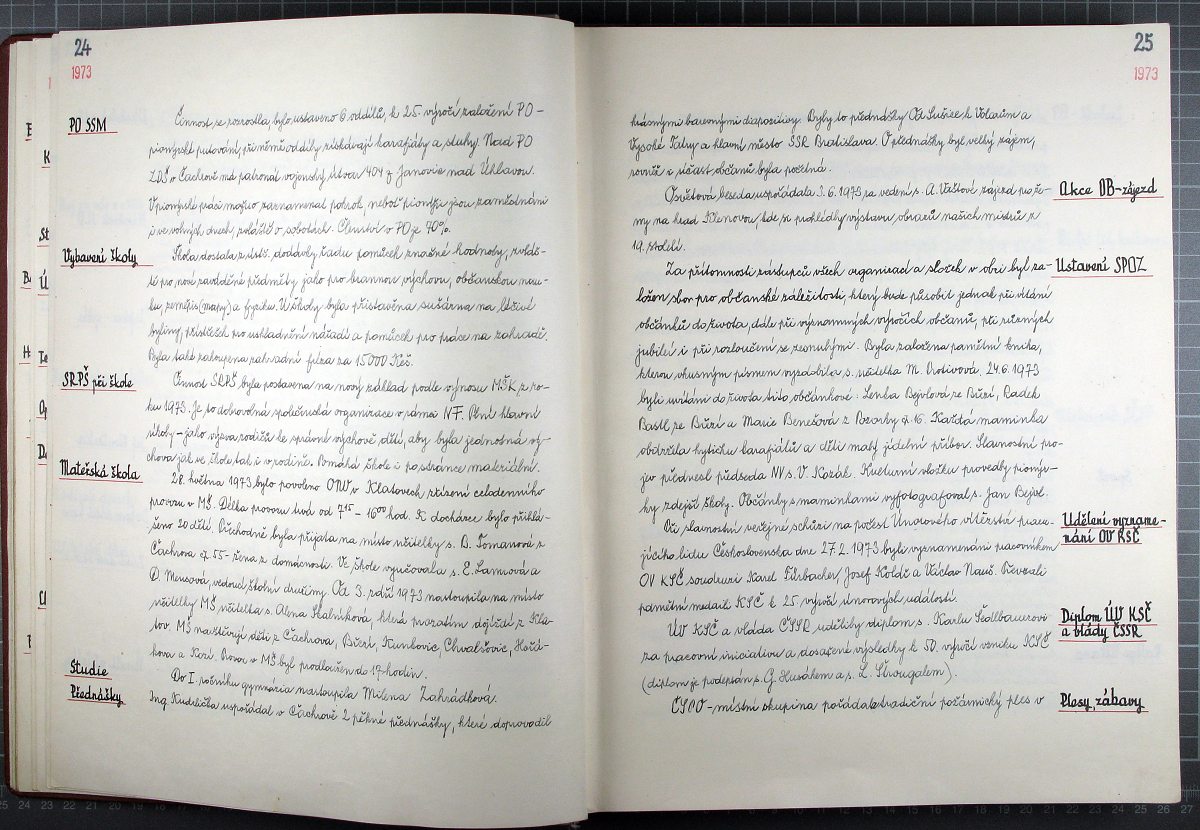 24
1973
PO SSM
Činnost se rozrostla, bylo ustaveno 6 oddílů, k 25. výročí založení PO -
pionýrské putování, při němž oddíly získávají karafiáty a stuhy. Nad PO
ZDŠ v Čachrově má patronát vojenský útvar 404 z Janovic nad Úhlavou.
V pionýrské práci možno zaznamenat pokrok, neboť pionýři jsou zaměstnáni
i ve volných dnech, zvláště o sobotách. Členství v PO je 40%.
Vybavení školy
Škola dostala z ústř. dodávky řadu pomůcek značné hodnoty, zvláš-
tě pro nově zaváděné předměty jako pro brannou výchovu, občanskou nau-
ku, zeměpis (mapy) a fyziku. U školy byla přistavěna sušárna na léčivé
byliny, přístřešek pro uskladnění nářadí a pomůcek pro práce na zahradě.
Byla také zakoupena zahradní fréza za 15.000 Kčs.
SRPŠ při škole
Činnost SRPŠ byla postavena na nový základ podle výnosu MŠK z ro-
ku 1973. Je to dobrovolná společenská organizace v rámci NF. Plní hlavní
úkoly - jako výzva rodičů ke správné výchově dětí, aby byla jednotná vý-
chova jak ve škole tak i v rodině. Pomáhá škole i po stránce materiální.
Mateřská škola
28. května 1973 bylo povoleno ONV v Klatovech zřízení celodenního
provozu v MŠ. Délka provozu trvá od 7 15 - 16 00 hod. K docházce bylo přihlá-
šeno 20 dětí. Přechodně byla přijata na místo učitelky s. B. Tomanová z
Čachrova čp 55 - žena z domácnosti. Ve škole vyučovala s. E. Lamrová a
D. Mensová, vedoucí školní družiny. Od 3. září 1973 nastoupila na místo
učitelky MŠ učitelka s. Alena Skalníková, která prozatím dojíždí z Kla-
tov. MŠ navštěvují děti z Čachrova, Bížeří, Kunkovic, Chvalšovic,
kova a Kozí. Provoz v MŠ byl prodloužen do 17 hodin.
Studie
Do I. ročníku gymnázia nastoupila Milena Zahrádková.
Přednášky
Ing. Kudrlička uspořádal v Čachrově 2 pěkné přednášky, které doprovodil
25
1973
krásnými barevnými diapozitivy. Byly to přednášky Od Sušice k Volarům a
Vysoké Tatry a hlavní město SSR Bratislava. O přednášky byl velký zájem,
rovněž i účast občanů byla početná.
Akce OB-zájezd
Osvětová beseda uspořádala 3. 6. 1973 za vedení s. A. Vaštové zájezd pro že-
ny na hrad Klenovou, kde si prohlédly výstavu obrazů našich mistrů z
19. století.
Ustavení SPOZ
Za přítomnosti zástupců všech organizací a složek v obci byl za-
ložen sbor pro občanské záležitosti, který bude působit jednak při vítání
občánků do života, dále při významných výročích občanů, při různých
jubileí i při rozloučení se zesnulými. Byla založena pamětní kniha,
kterou vkusným písmem vyzdobila s. učitelka M. Protivová. 24. 6. 1973
byli uvítáni do života tito občánkové: Lenka Bejvlová ze Bížeří, Radek
Bastl ze Bížeří a Marie Benešová z čp. 16. Každá maminka
obdržela kytičku karafiátů a děti malý jídelní příbor. Slavnostní pro-
jev přednesl předseda NV s. V. Kozák. Kulturní vložku provedly pionýr-
ky zdejší školy. Občánky s maminkami vyfotografoval s. Jan Bejvl.
Udělení vyzname-
nání OV KSČ
Při slavnostní veřejné schůzi na počest Únorového vítězství pracu-
jícího lidu Československa dne 27. 2. 1973 byli vyznamenáni pracovníkem
OV KSČ soudruzi Karel Fürbacher, Josef Koldě a Václav Nauš. Převzali
pamětní medaili KSČ k 25. výročí únorových událostí.
Diplom ÚV KSČ
a vlády ČSSR
ÚV KSČ a vláda ČSSR udělily diplom s. Karlu Sedlbauerovi
za pracovní iniciativu a dosažené výsledky k 50. výročí vzniku KSČ
(diplom je podepsán s. G. Husákem a s. L. Štrougalem).
Plesy, zábavy
ČSPO - místní skupina pořádala tradiční požárnický ples v